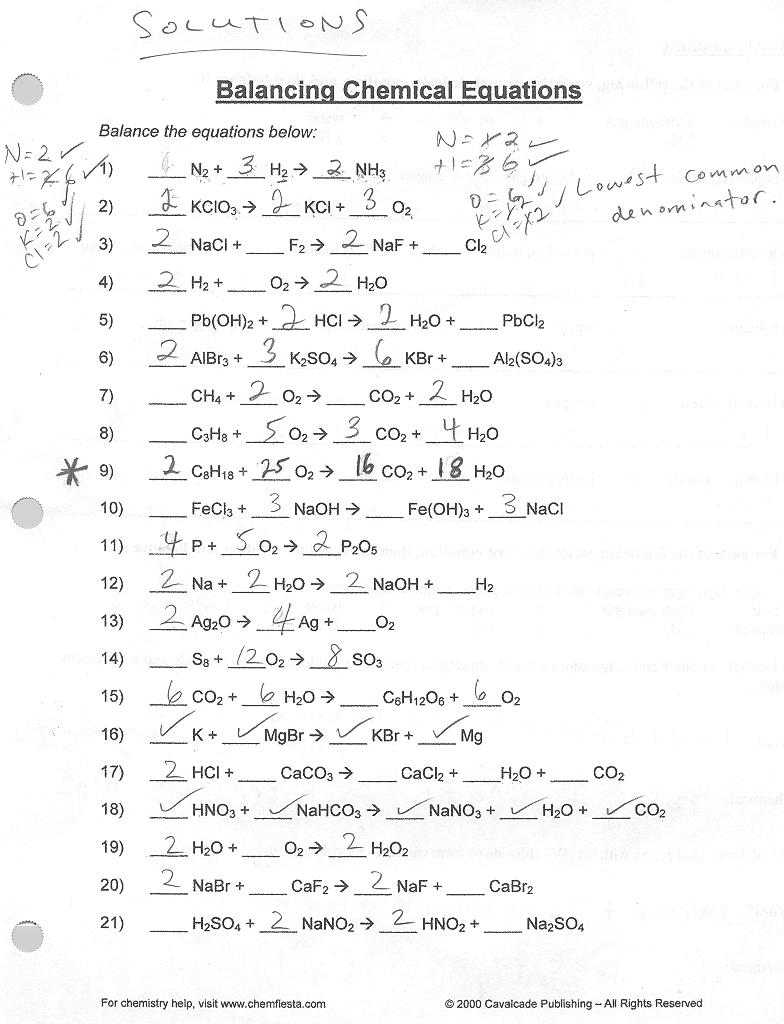 SOLUTIONS
Balancing Chemical Equations
Balance the equations below:
N=2 ✓
H=2 6 ✓
O=6 ✓
K=2 ✓
Cl=2 ✓
N=1 2 ✓
H=3 6 ✓
O=6 ✓
K=1 2 ✓
Cl=1 2 ✓
Lowest common
denominator.
1) ___ N₂ + 3 H₂ → 2 NH₃
2) 2 KClO₃ → 2 KCl + 3 O₂
3) 2 NaCl + ___ F₂ → 2 NaF + ___ Cl₂
4) 2 H₂ + ___ O₂ → 2 H₂O
5) ___ Pb(OH)₂ + 2 HCl → 2 H₂O + ___ PbCl₂
6) 2 AlBr₃ + 3 K₂SO₄ → 6 KBr + ___ Al₂(SO₄)₃
7) ___ CH₄ + 2 O₂ → ___ CO₂ + 2 H₂O
8) ___ C₃H₈ + 5 O₂ → 3 CO₂ + 4 H₂O
* 9) 2 C₈H₁₈ + 25 O₂ → 16 CO₂ + 18 H₂O
10) ___ FeCl₃ + 3 NaOH → ___ Fe(OH)₃ + 3 NaCl
11) 4 P + 5 O₂ → 2 P₂O₅
12) 2 Na + 2 H₂O → 2 NaOH + ___ H₂
13) 2 Ag₂O → 4 Ag + ___ O₂
14) ___ S₈ + 12 O₂ → 8 SO₃
15) 6 CO₂ + 6 H₂O → ___ C₆H₁₂O₆ + 6 O₂
16) ✓ K + ✓ MgBr → ✓ KBr + ✓ Mg
17) 2 HCl + ___ CaCO₃ → ___ CaCl₂ + ___ H₂O + ___ CO₂
18) ✓ HNO₃ + ✓ NaHCO₃ → ✓ NaNO₃ + ✓ H₂O + ✓ CO₂
19) 2 H₂O + ___ O₂ → 2 H₂O₂
20) 2 NaBr + ___ CaF₂ → 2 NaF + ___ CaBr₂
21) ___ H₂SO₄ + 2 NaNO₂ → 2 HNO₂ + ___ Na₂SO₄
For chemistry help, visit www.chemfiesta.com © 2000 Cavalcade Publishing – All Rights Reserved